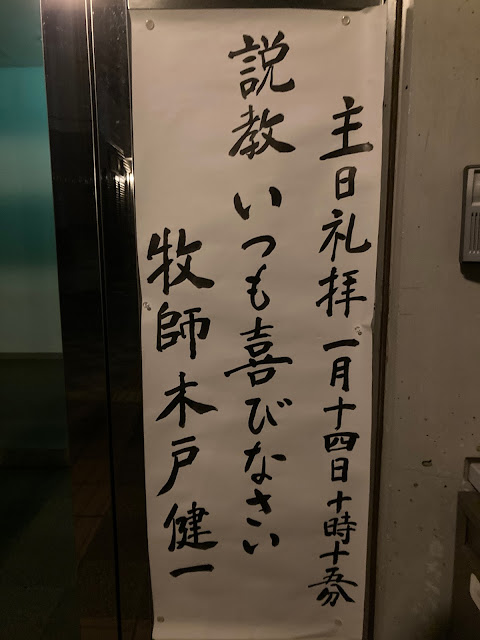 主日礼拝 一月十四日十時十五分
説教 いつも喜びなさい
牧師木戸健一